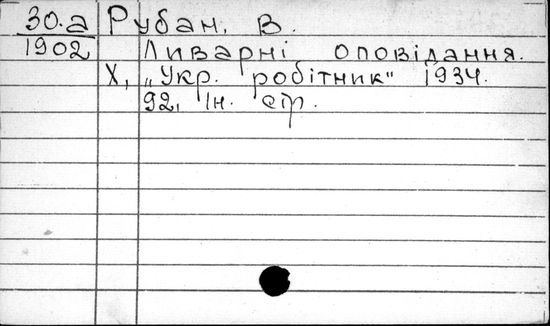 30.а Рубан, В.
1902 Ливарні оповідання.
Х, „Укр. робітник" 1934.
92, 1н. стр.